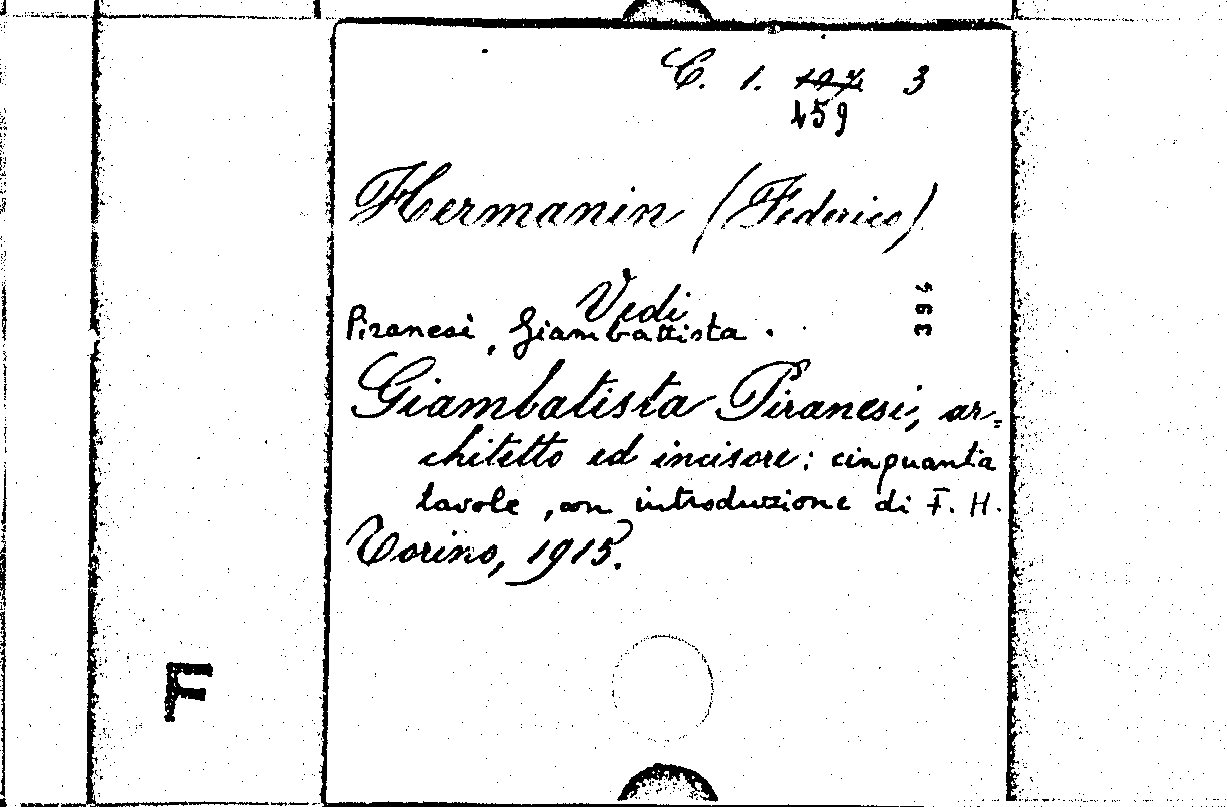 C. 1. 197 3
459
Hermanin (Federico)
Vedi
394
Piranesi, Giambattista.
Giambatista Piranesi, ar=
chitetto ed incisore: cinquanta
tavole, con introduzione di F. H.
Torino, 1915.
F